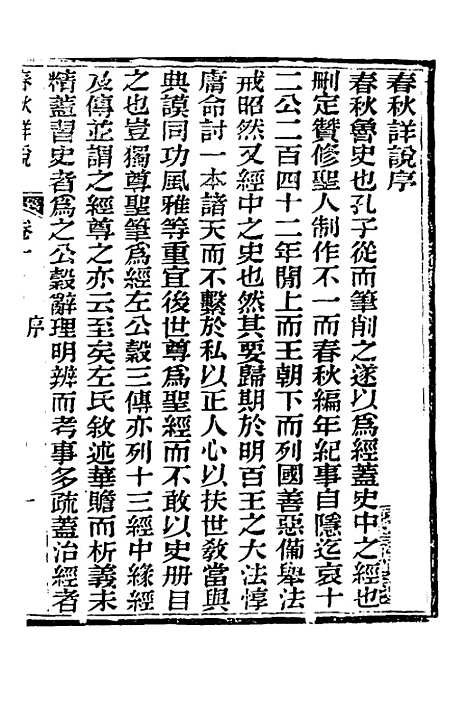 春秋詳說序
春秋魯史也孔子從而筆削之遂以爲經蓋史中之經也
刪定贊修聖人制作不一而春秋編年紀事自隱迄哀十
二公二百四十二年閒上而王朝下而列國善惡備舉法
戒昭然又經中之史也然其要歸期於明百王之大法惇
庸命討一本諸天而不繫於私以正人心以扶世敎當與
典謨同功風雅等重宜後世尊爲聖經而不敢以史册目
之也豈獨尊聖筆爲經左公穀三傳亦列十三經中緣經
及傳並謂之經尊之亦云至矣左氏敘述華贍而析義未
精蓋習史者爲之公穀辭理明辨而考事多疏蓋治經者
春秋詳說
卷
序
一